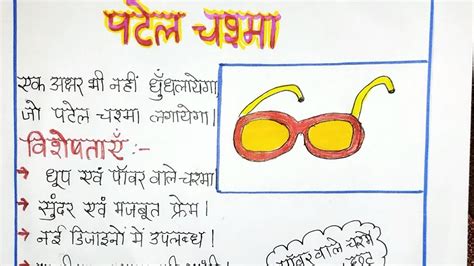 पटेल चश्मा
एक अक्षर भी नहीं धुँधलायेगा
जो पटेल चश्मा लगायेगा।
विशेषताएँ :-
→ धूप एवं पॉवर वाले चश्मा
→ सुंदर एवं मजबूत फ्रेम।
→ नई डिजाइनों में उपलब्ध।
पॉवर वाले चश्मे